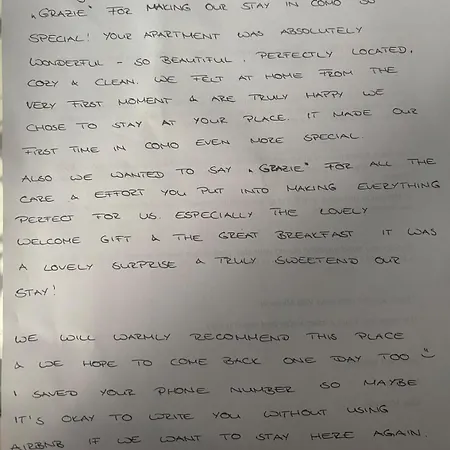 „GRAZIE" FOR MAKING OUR STAY IN COMO SO
SPECIAL! YOUR APARTMENT WAS ABSOLUTELY
WONDERFUL - SO BEAUTIFUL, PERFECTLY LOCATED,
COZY & CLEAN. WE FELT AT HOME FROM THE
VERY FIRST MOMENT & ARE TRULY HAPPY WE
CHOSE TO STAY AT YOUR PLACE. IT MADE OUR
FIRST TIME IN COMO EVEN MORE SPECIAL.
ALSO WE WANTED TO SAY „GRAZIE" FOR ALL THE
CARE & EFFORT YOU PUT INTO MAKING EVERYTHING
PERFECT FOR US. ESPECIALLY THE LOVELY
WELCOME GIFT & THE GREAT BREAKFAST IT WAS
A LOVELY SURPRISE & TRULY SWEETEND OUR
STAY!
WE WILL WARMLY RECOMMEND THIS PLACE
& WE HOPE TO COME BACK ONE DAY TOO
I SAVED YOUR PHONE NUMBER SO MAYBE
IT'S OKAY TO WRITE YOU WITHOUT USING
AIRBNB IF WE WANT TO STAY HERE AGAIN.